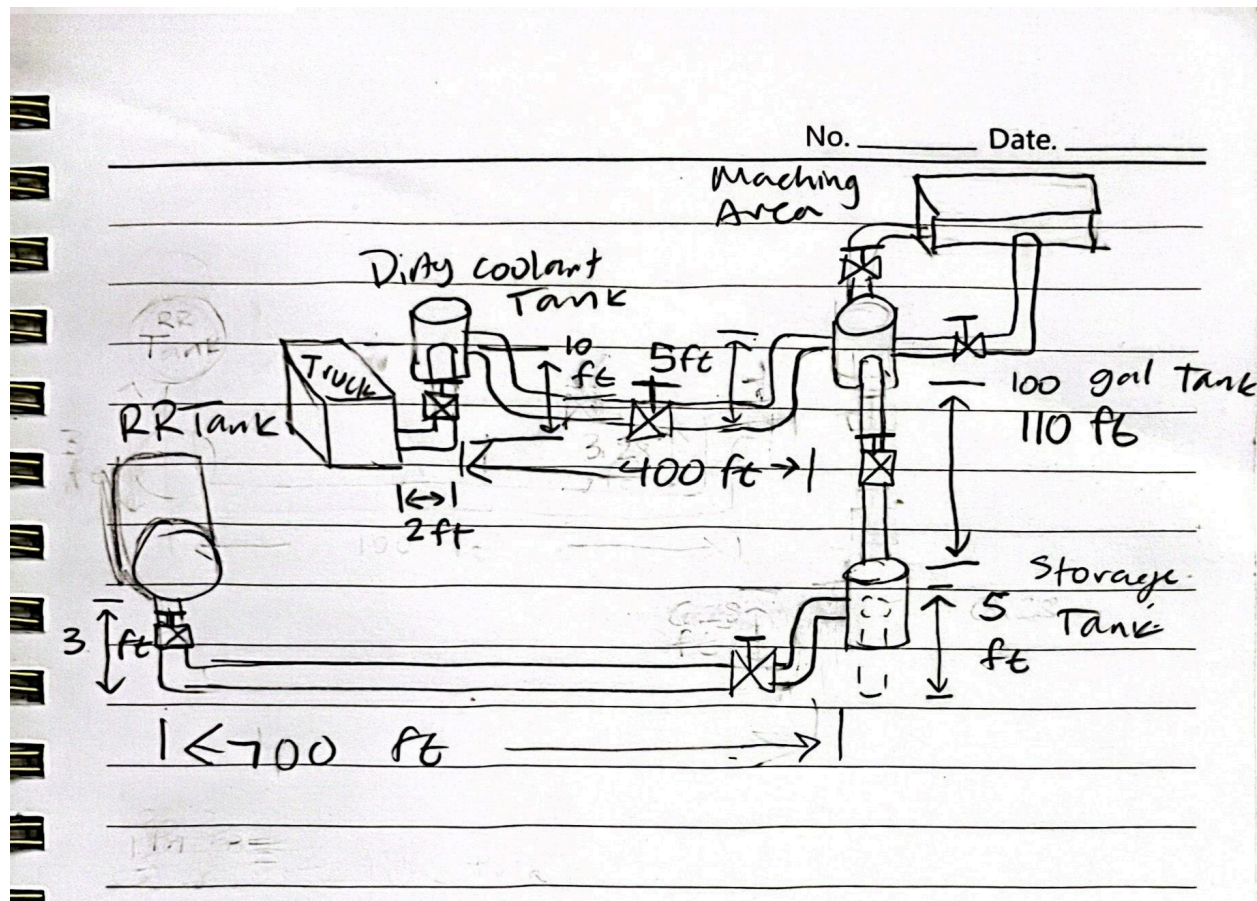 No. Date.
Maching
Area
Dirty coolant
Tank
RR
Tank
Truck
10
ft
5ft
100 gal Tank
110 ft
RR Tank
400 ft
2ft
Storage
Tank
5
ft
3 ft
700 ft